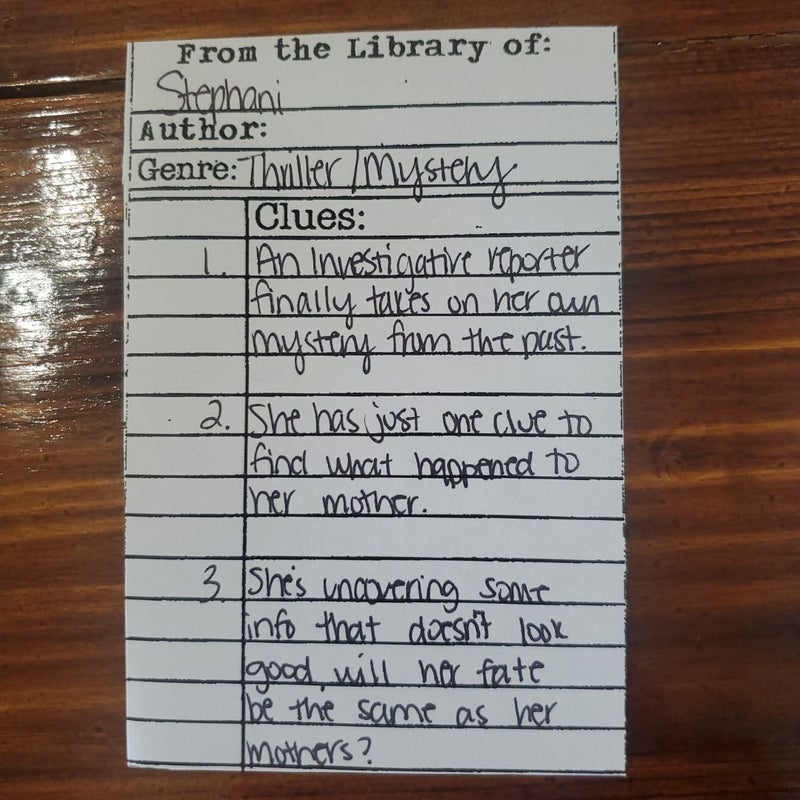 From the Library of:
Stephani
Author:
Genre: Thriller/Mystery
Clues:
1. An Investigative reporter
finally takes on her own
mystery from the past.
2. She has just one clue to
find what happened to
her mother.
3 She's uncovering some
info that doesn't look
good, will her fate
be the same as her
mothers?